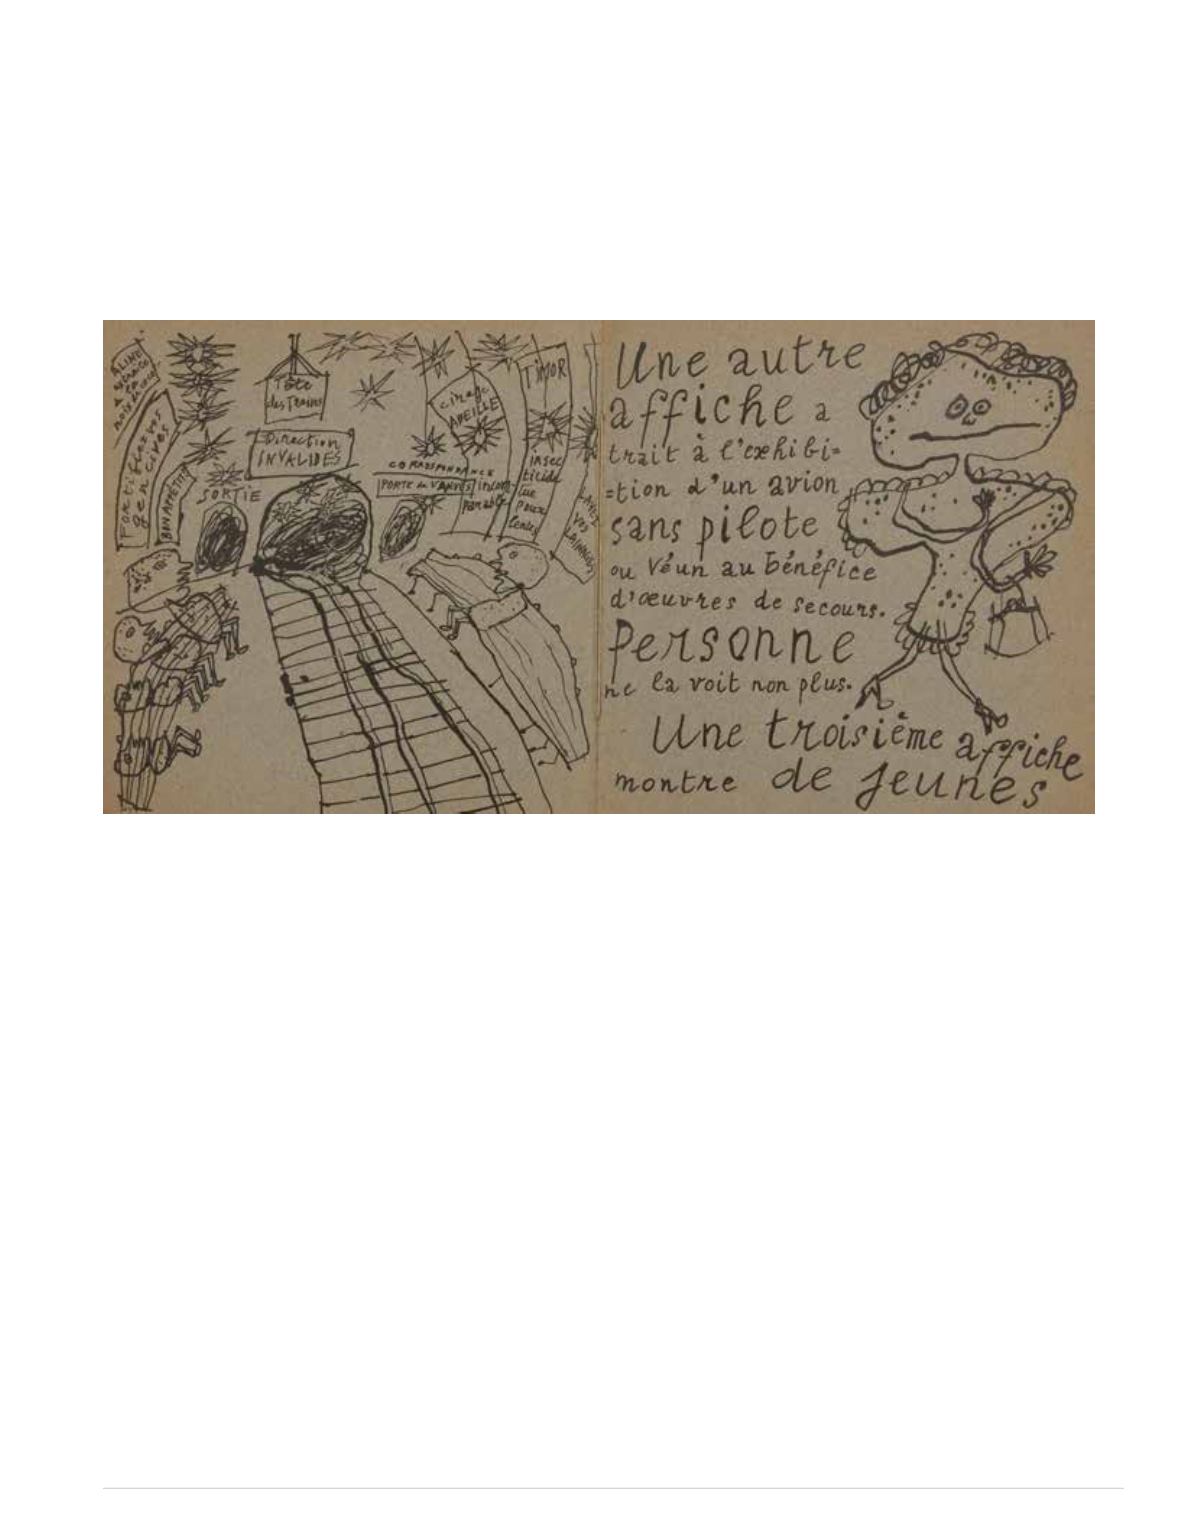 Tête
des Trains
Direction
INVALIDES
SORTIE
CORRESPONDANCE
PORTE de VANVES
Fortifiez vos
gencives
BON APPÉTIT
cirage
ABEILLE
incom
parable
TIMOR
insec
ticide
tue
poux
lentes
Une autre
affiche a
trait à l'exhibi=
=tion d'un avion
sans pilote
ou Véun au bénéfice
d'œuvres de secours.
Personne
ne la voit non plus.
Une troisième affiche
montre de jeunes